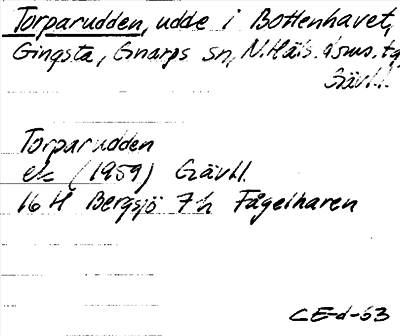 Torparudden, udde i Bottenhavet,
Gingsta, Gnarps sn, N. Häls. dsms. tg
Gävl.l.
Torparudden
ek (1959) Gävl.l.
16 H Bergsjö 7 h Fågelharen
CE-d-63